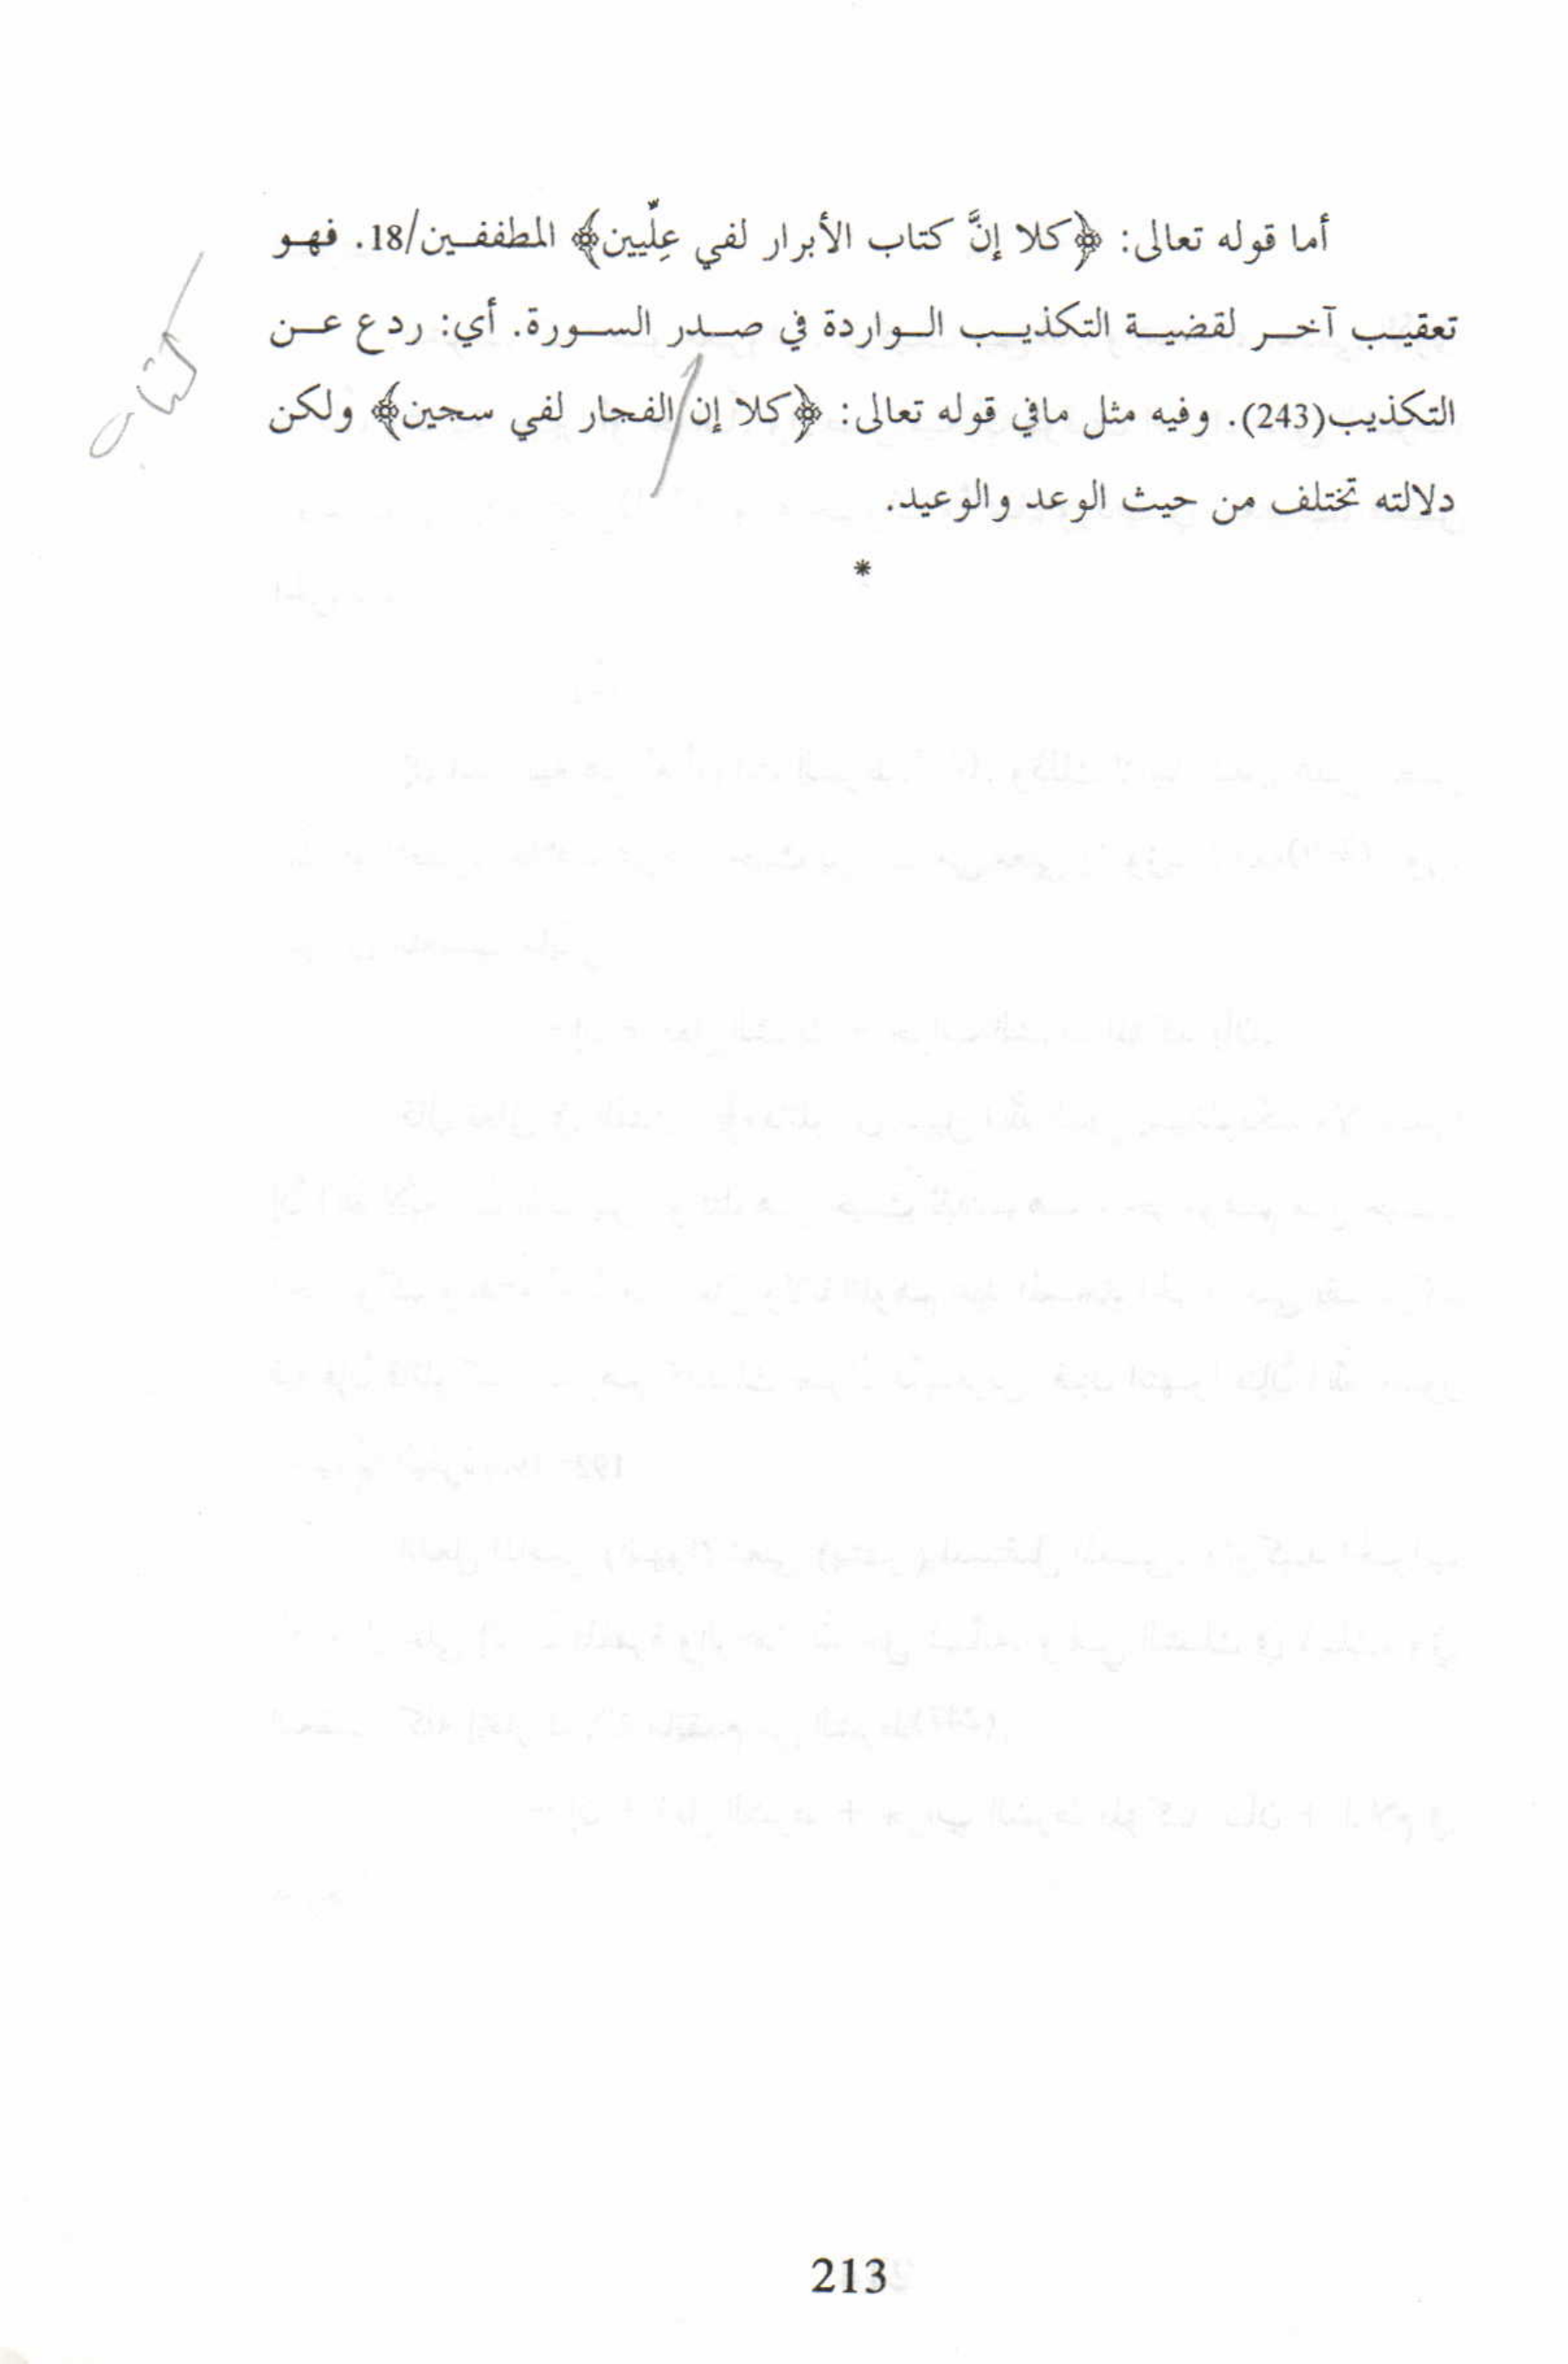 أما قوله تعالى: ﴿كلا إنَّ كتاب الأبرار لفي عِلِّيين﴾ المطففين/18. فهو
تعقيب آخر لقضية التكذيب الواردة في صدر السورة. أي: ردع عن
التكذيب(243). وفيه مثل مافي قوله تعالى: ﴿كلا إن الفجار لفي سجين﴾ ولكن
كتاب
دلالته تختلف من حيث الوعد والوعيد.
*
213